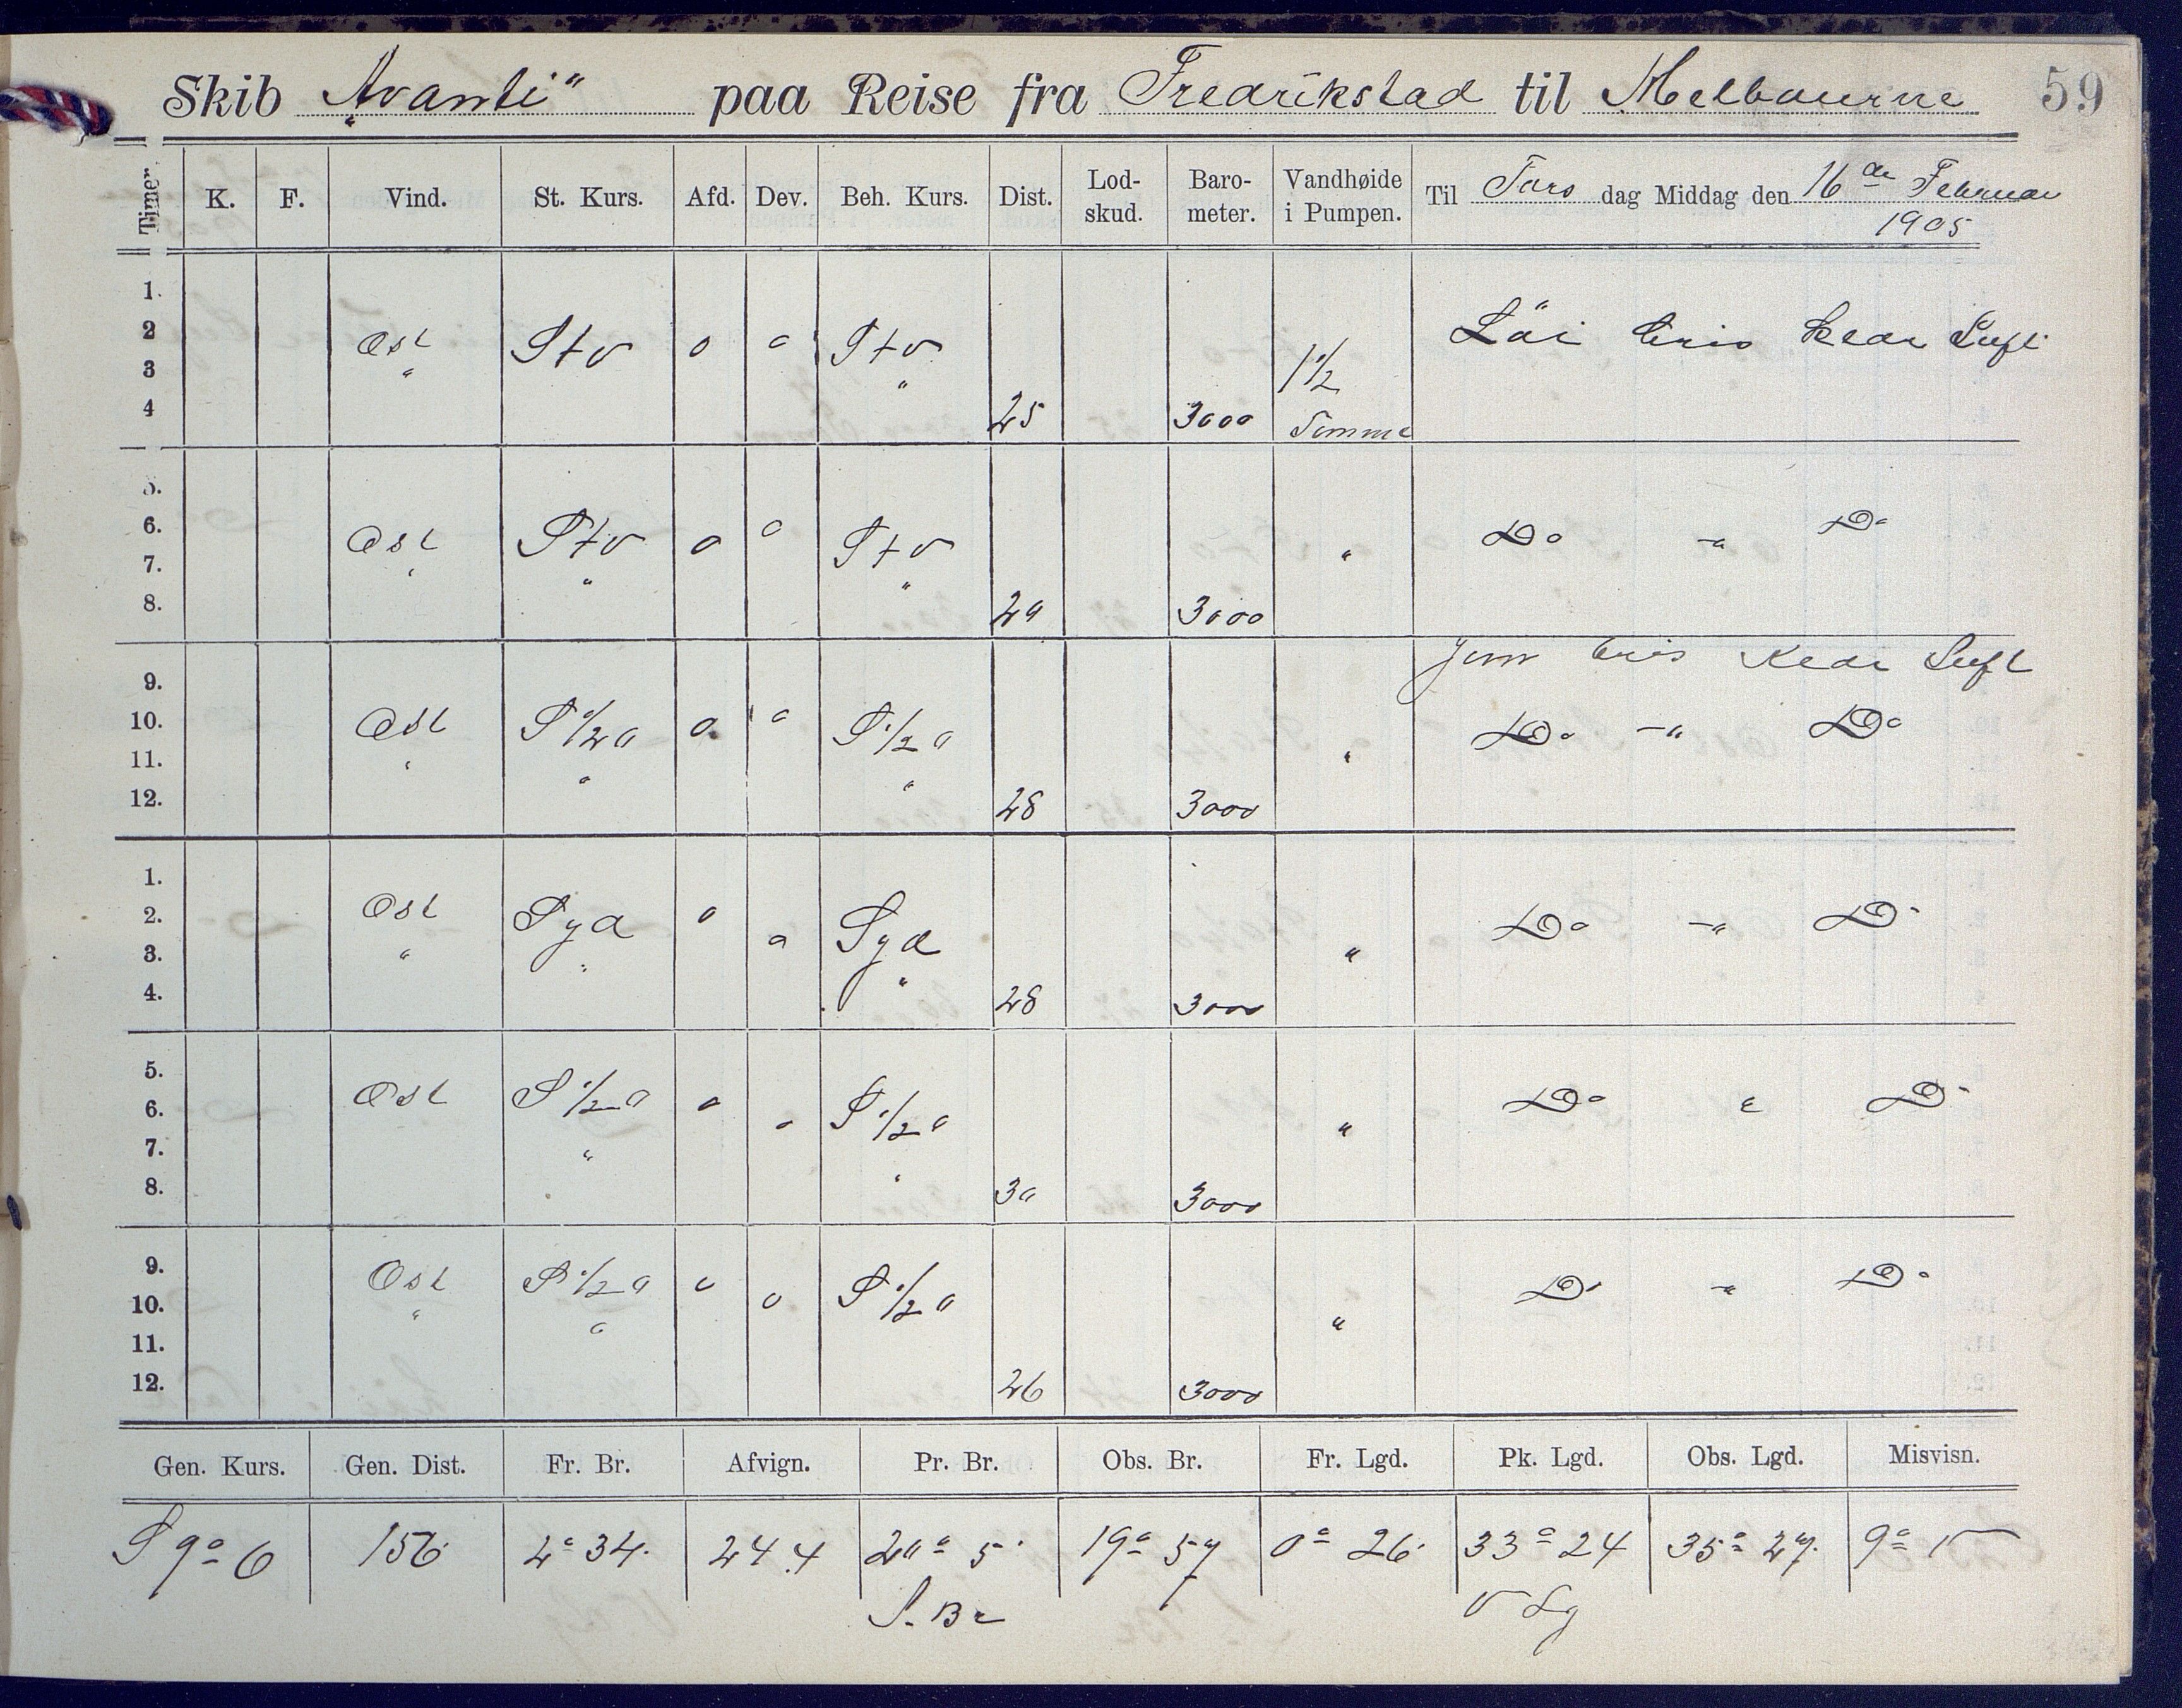 Skib „Avanti“ paa Reise fra Fredrikstad til Melbourne 59
Timer. K. F. Vind. St. Kurs. Afd. Dev. Beh. Kurs. Dist. Lod-skud. Baro-meter. Vandhøide i Pumpen. Til Tors dag Middag den 16de Februar
1905
1.
2 Ost StV 0 0 StV Löi Bris klar Luft
3 " " 1 1/2
4 25 3000 Tomme
5.
6. Ost StV 0 0 StV " Do -"- Do
7. " " "
8. 29 3000
Jevn Bris klar Luft
9.
10. Ost S 1/2 O 0 0 S 1/2 O Do -"- Do
11. " " " "
12. 28 3000
1.
2. Ost Syd 0 0 Syd Do -"- Do
3. " " " "
4. 28 3000
5.
6. Ost S 1/2 O 0 0 S 1/2 O Do " Do
7. " " "
8. 30 3000
9. Ost S 1/2 O 0 0 S 1/2 O Do -"- Do
10. " " "
11.
12. 26 3000
Gen. Kurs. Gen. Dist. Fr. Br. Afvign. Pr. Br. Obs. Br. Fr. Lgd. Pk. Lgd. Obs. Lgd. Misvisn.
S 9° 6 156 2° 34. 24.4 20° 5' 19° 57 0° 26' 33° 24 35° 27. 9°
S. Br V Lg